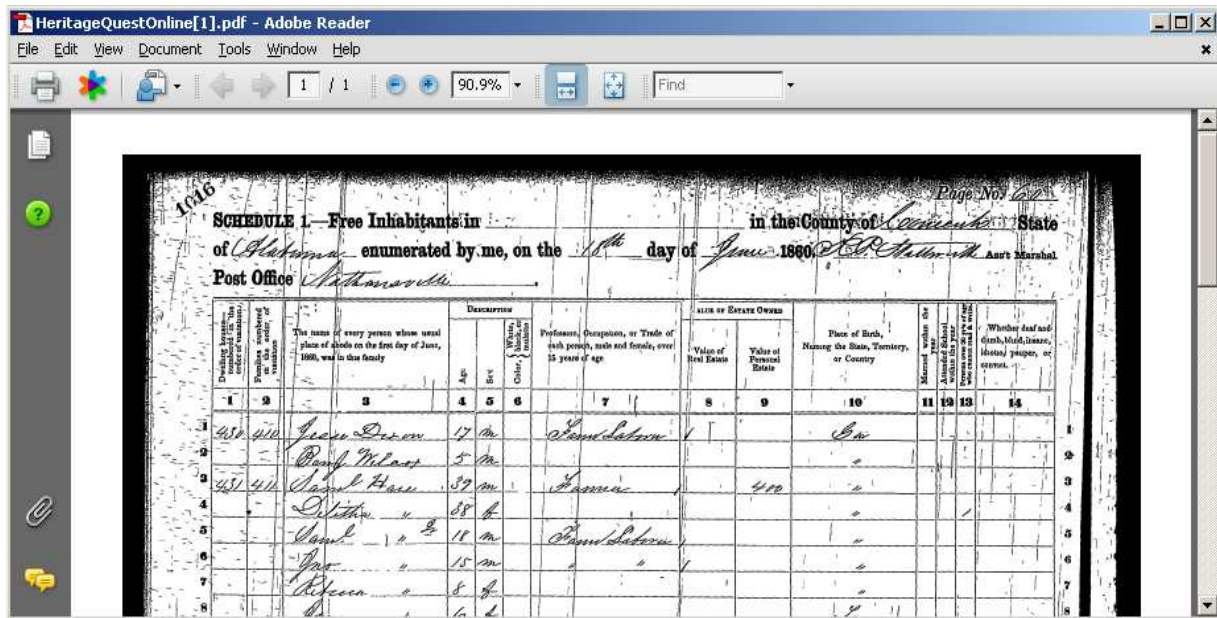 HeritageQuestOnline[1].pdf - Adobe Reader
File Edit View Document Tools Window Help
1 / 1 90.9% Find
1016
Page No. 60
SCHEDULE 1.—Free Inhabitants in in the County of Conecuh State
of Alabama enumerated by me, on the 18th day of June 1860. Ass't Marshal
Post Office
DESCRIPTION
VALUE OF ESTATE OWNED
Dwelling houses—numbered in the order of visitation.
Families numbered in the order of visitation
The name of every person whose usual place of abode on the first day of June, 1860, was in this family
Age
Sex
Color, White, black, or mulatto
Profession, Occupation, or Trade of each person, male and female, over 15 years of age
Value of Real Estate
Value of Personal Estate
Place of Birth, Naming the State, Territory, or Country
Married within the year
Attended School within the year
Persons over 20 y'rs of age who cannot read & write
Whether deaf and dumb, blind, insane, idiotic, pauper, or convict.
1 2 3 4 5 6 7 8 9 10 11 12 13 14
1 430 410 Jesse Dixon 17 m Farm Laborer Ga 1
2 Benj 5 m " 2
3 431 411 Saml Hare 39 m Farmer 400 " 3
4 " 38 f " / 4
5 Saml " 18 m Farm Laborer " 5
6 Jno " 15 m " " " 6
7 Rebecca " 8 f " 7
8 8